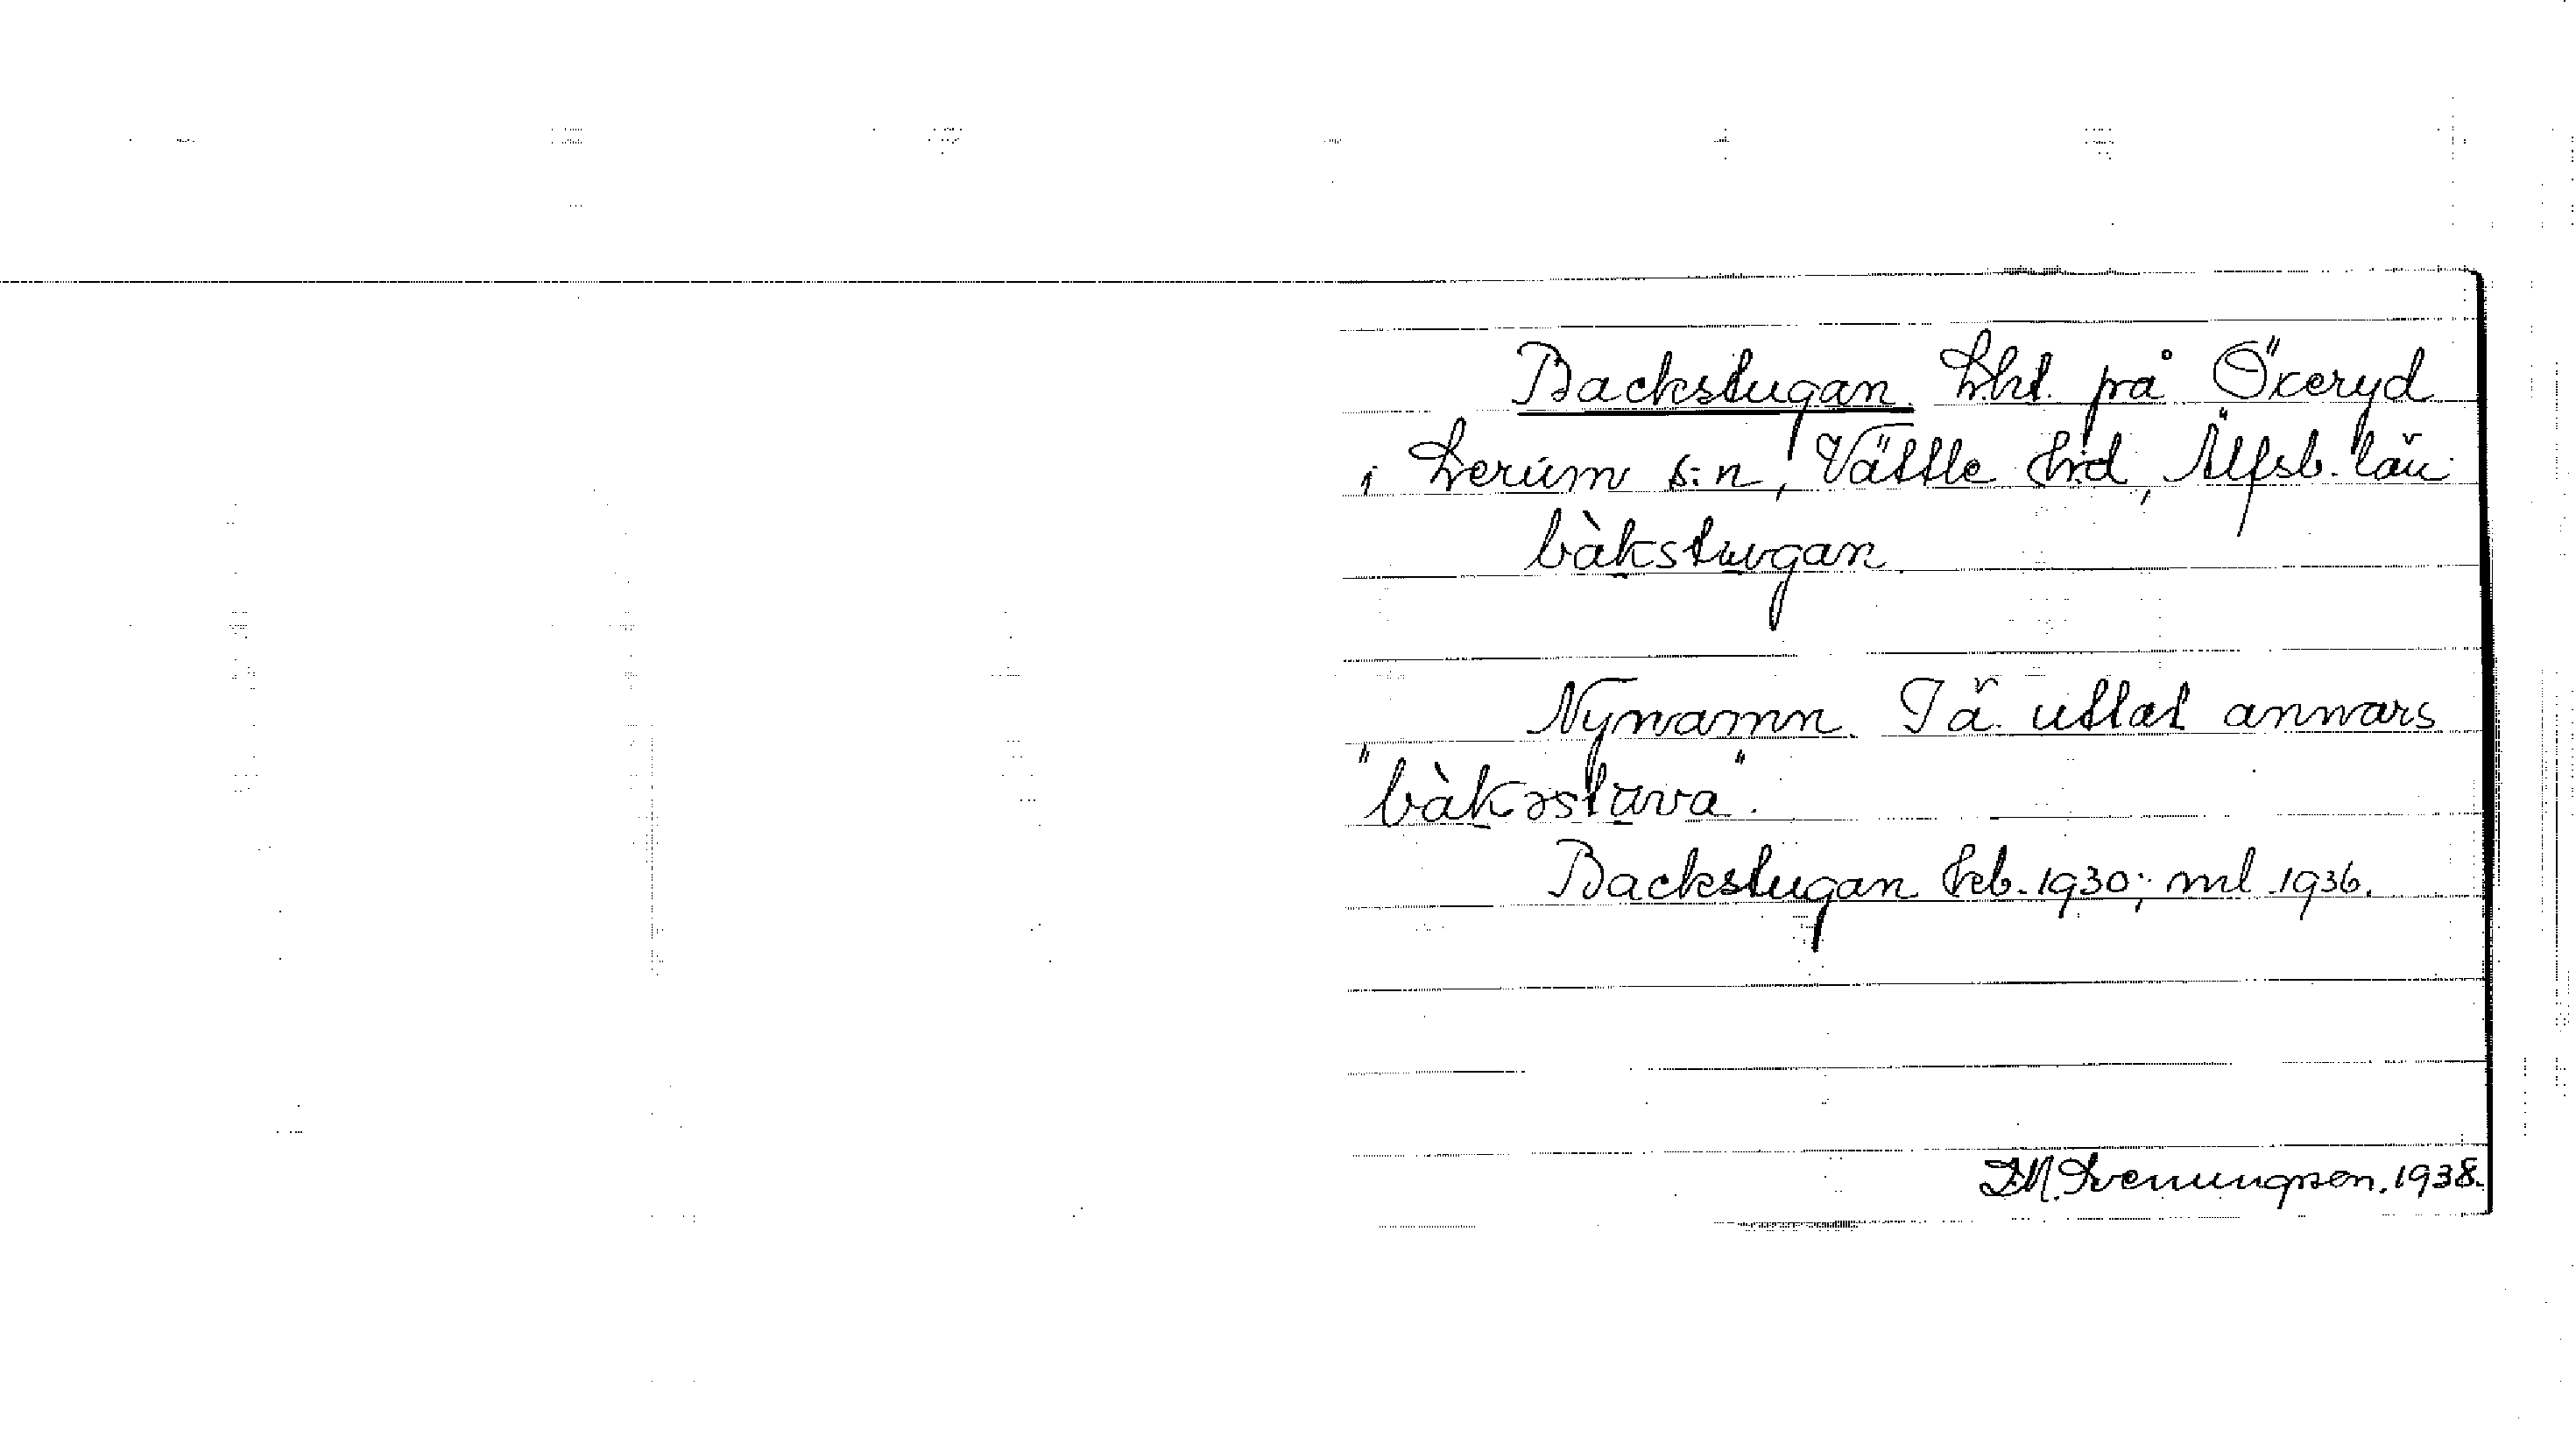 Backstugan. Lht. på Öxeryd
i Lerum s:n, Vättle hrd, Älfsb. län
bàkstugan.
Nynamn. Fä. uttal annars
"bàkəstuva".
Backstugan Jrb. 1930; ml 1936.
1938.